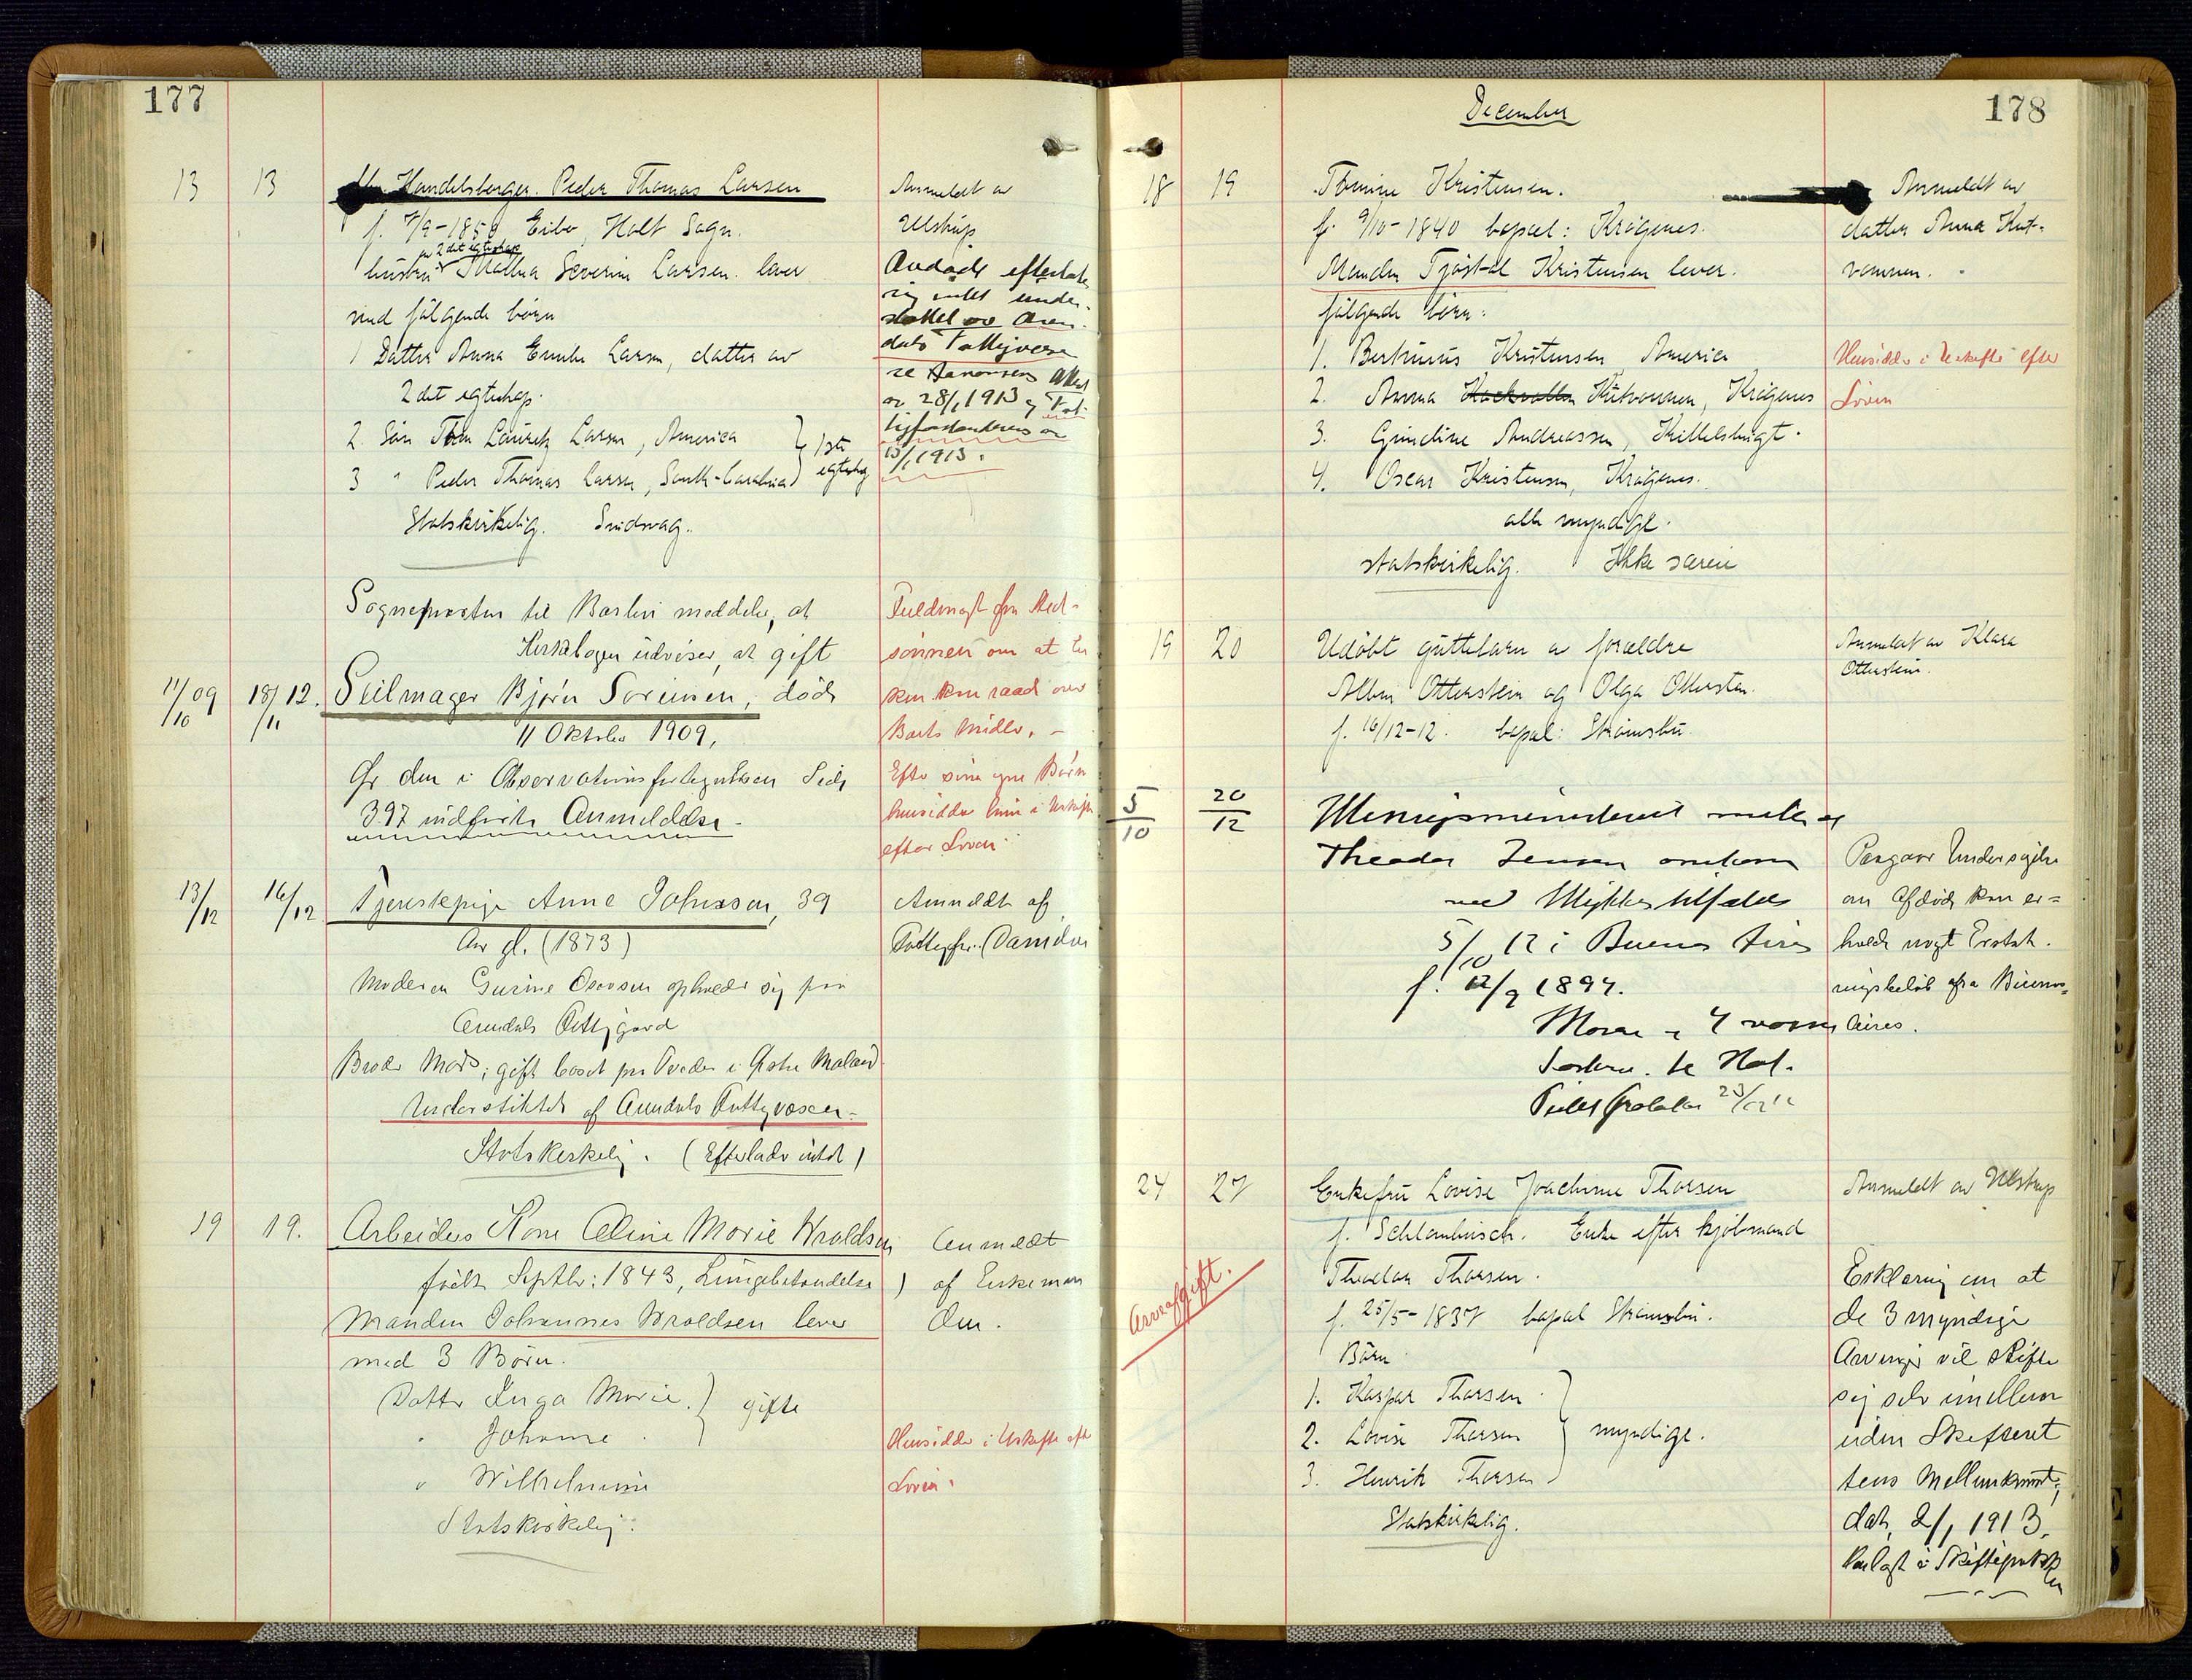 177
13 13 Handelsborger. Peder Thomas Larsen
f. 7/9-1850, Eibo, Holt Sogn.
av 2det egteskap
hustru Severine Larsen. lever
med følgende børn
1 Datter Anna Emilie Larsen, datter av
2det egteskap.
2. Søn Thom Lauritz Larsen, America
3 " Peder Thomas Larsen, South-Carolina
1ste egteskap
Statskirkelig. Sindssvag.
Anmeldt av
Ulstrup
Avdøde efterlater
sig intet under-
støttet av Aren-
dals Fattigvæsen
28/1 1913 og Fat-
tigforstanderens av
15/1 1913.
Sognepresten til Barbu meddeler, at
Kirkebogen udviser, at gift
11/10 09 18/11 12. Seilmager Bjørn Sørensen, døde
11 Oktober 1909,
Gr den i Observationsfortegnelsen Side
397 indførte Anmeldelse.
Fuldmagt fra Sted-
sønnen om at
kan raade over
Boets Midler. -
Efter sine egne Børn
hensidder hun i Uskifte
efter Loven.
13/12 16/12 Tjenestepige Anne Johnsson, 39
Aar gl. (1873)
Moderen Gurine Osovsen opholder sig paa
Arendals Fattiggaard
Broder Mads, gift bosat paa Tveder i Østre Moland
Understøttet af Arendals Fattigvæsen-
Statskirkelig. (Efterlader intet)
Anmeldt af
Fattigfor. Danielsen
19 19. Arbeiders Kone Oline Marie Wroldsen
født Septbr: 1843, Lungebetændelse
Manden Johannes Wroldsen lever
med 3 Børn.
Datter Inga Marie.
" Johanne
gifte
" Wilhelmine
Statskirkelig.
Anmeldt
af Enkeman
den.
Hensidder i Uskifte eft
Loven.
178
December
18 19 Tomine Kristensen.
f. 9/10-1840 bopæl: Krøgenes.
Manden Tjøstel Kristensen lever.
følgende børn:
1. Bertinius Kristensen, America
2. Anna Kutvannen, Krøgenes
3. Gundine Andreassen, Kittelsbugt.
4. Oscar Kristensen, Krøgenes.
alle myndige.
statskirkelig. Ikke særeie
Anmeldt av
datter Anna Kut-
vannen.
Hensidder i Uskifte efter
Loven
19 20 Udøbt guttebarn av forældre
Albin Otterstein og Olga Otterstein.
f. 16/12-12. bopæl: Strømsbu.
Anmeldt av Klara
Otterstein.
5/10 20/12 Utenrigsministeriet melder at
Theodor Jensen omkom
ved Ulykkestilfælde
5/10 12 i Buenos Aires
f. 12/9 1894.
Moren & 4 voxne
Søstre. te Hol.
23/12 12
Paagaar Undersøgelse
om Afdøde kan er-
holde nogt Erstat-
ningsbeløb fra Buenos-
Aires.
24 27 Enkefru Lovise Joachime Thorsen
f. Schlambusch. Enke efter kjøbmand
Theodor Thorsen.
f. 25/5-1837 bopæl Strømsbu.
Børn
1. Kaspar Thorsen
2. Lovise Thorsen
3. Henrik Thorsen
myndige.
Statskirkelig.
Arveafgift.
Anmeldt av Ulstrup
Erklæring om at
de 3 myndige
Arvinger vil skifte
sig selv imellem
uden Skifteret
tens Mellemkomst,
dat. 2/1 1913.
Henlagt i Skiftepakken